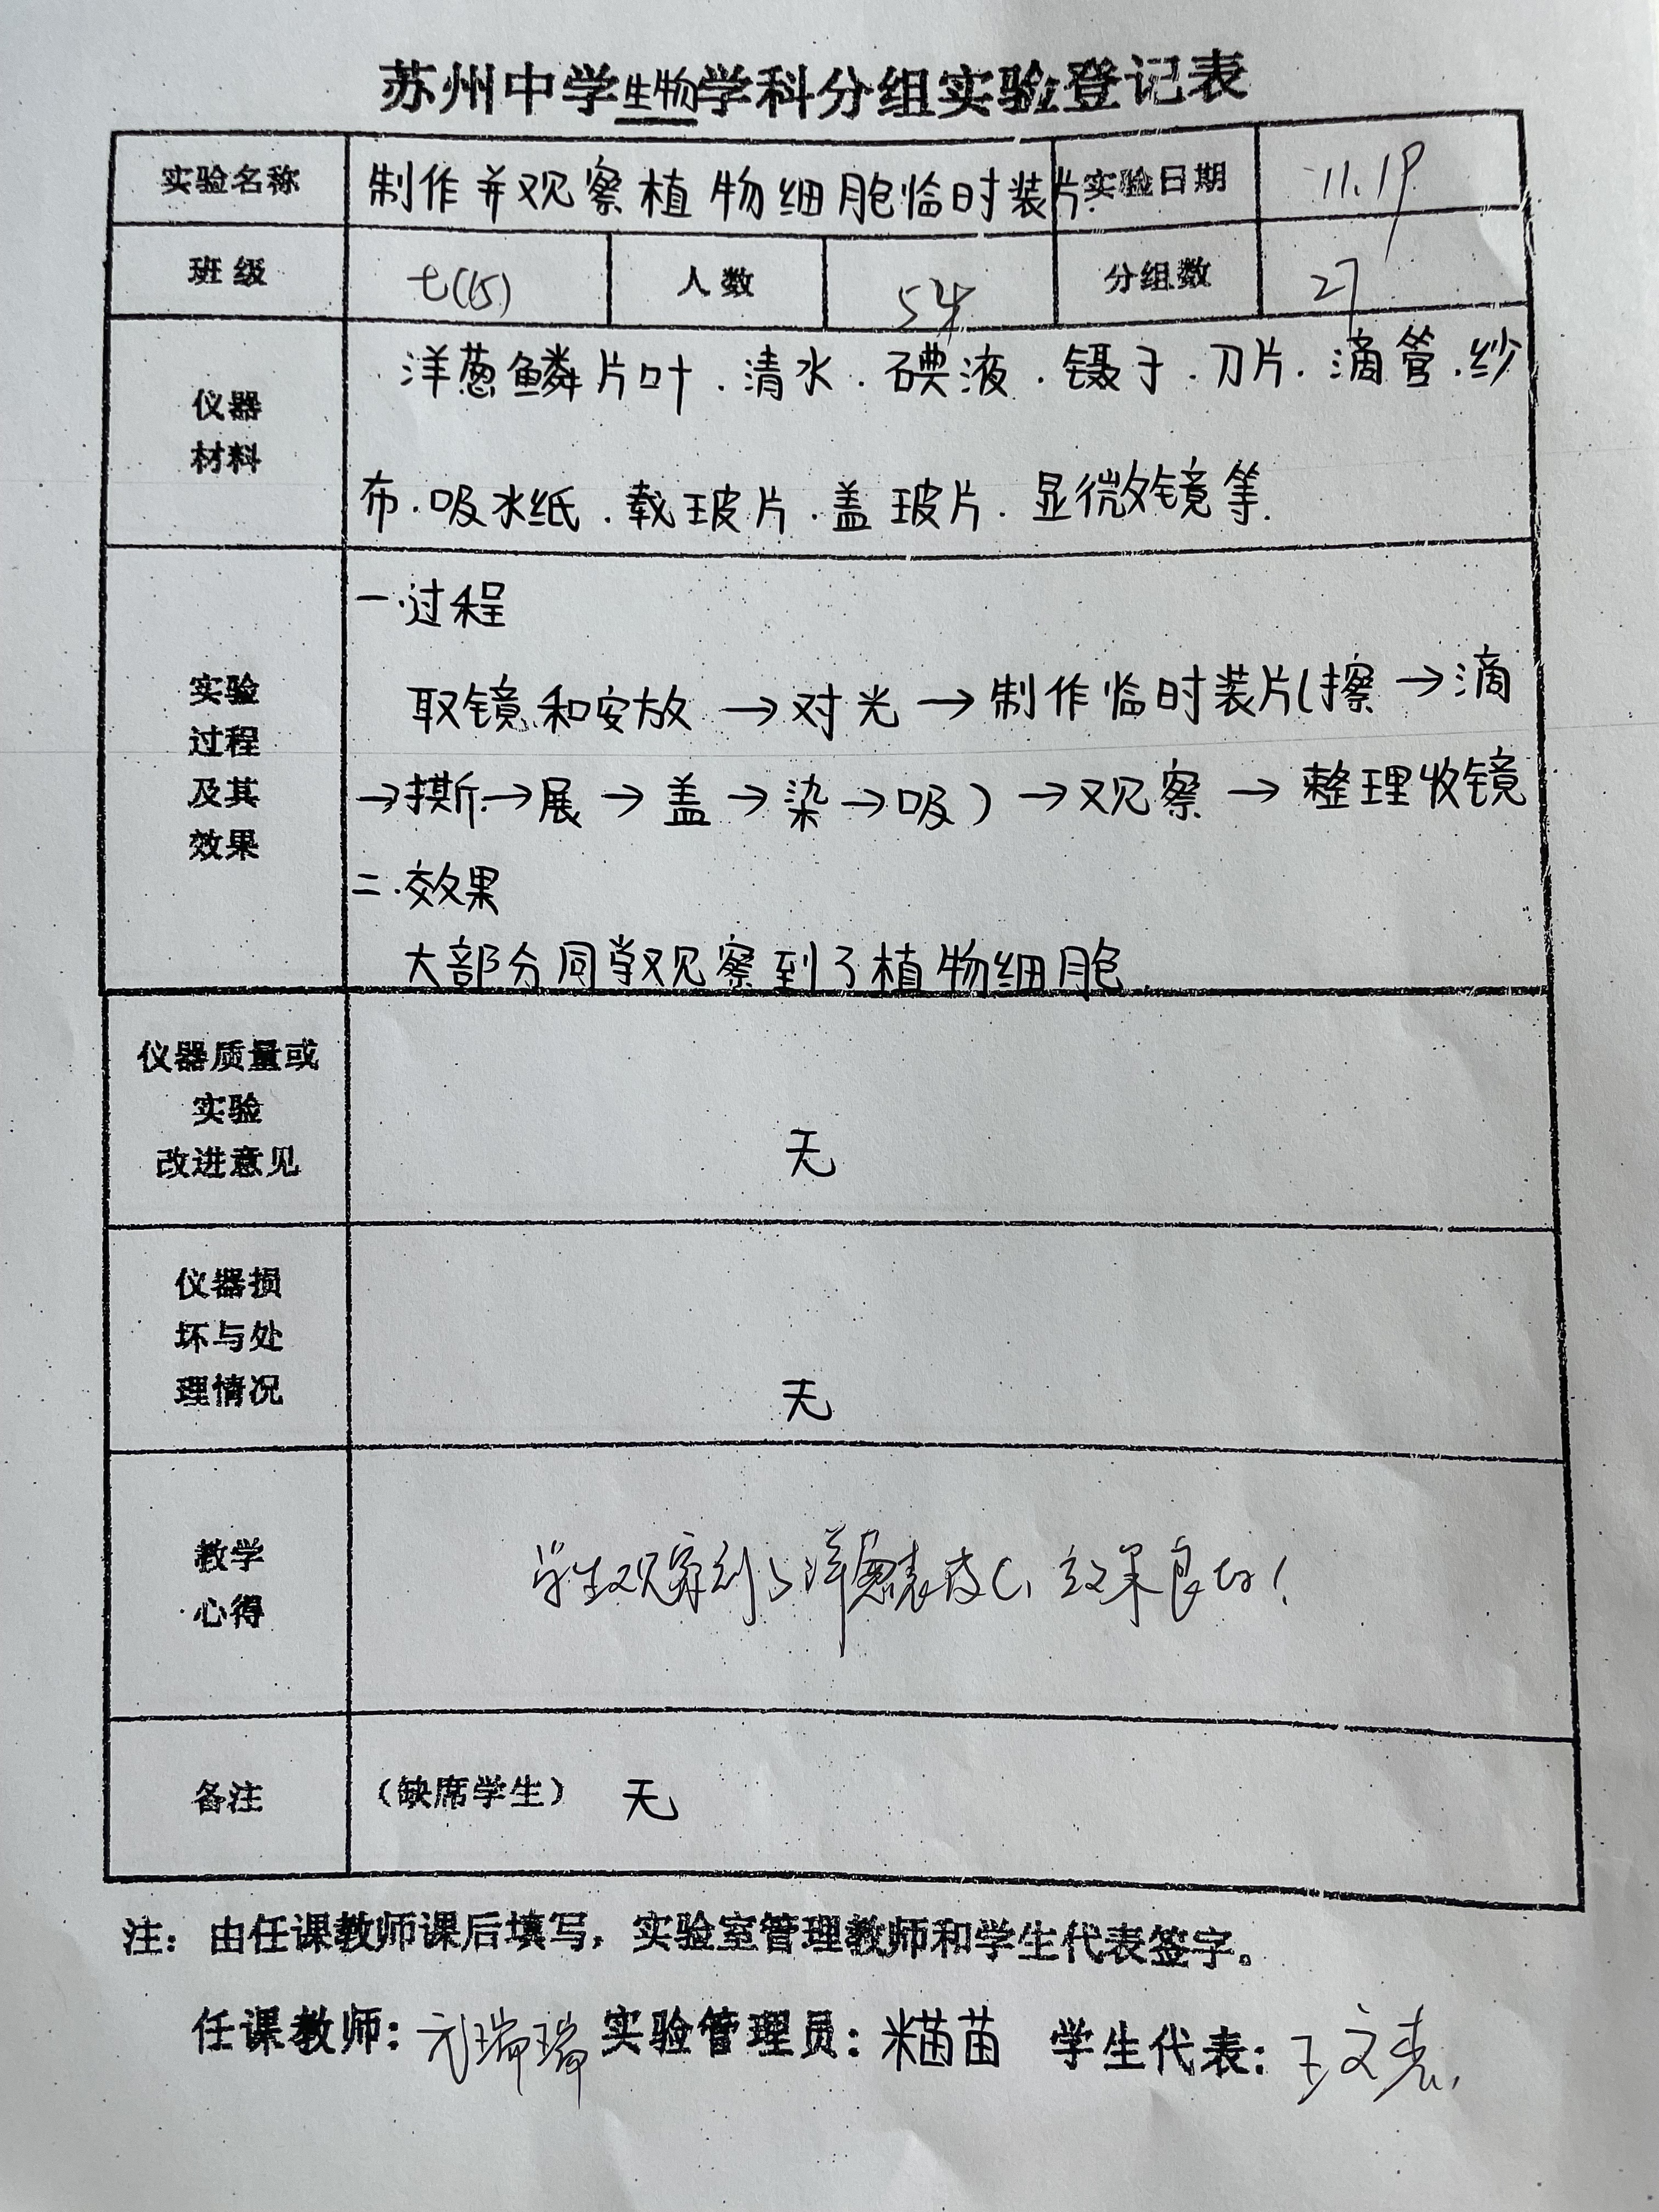 苏州中学生物学科分组实验登记表
实验名称 制作并观察植物细胞临时装片. 实验日期 11.19
班级 七(15) 人数 54 分组数 27
仪器
材料
洋葱鳞片叶.清水.碘液.镊子.刀片.滴管.纱
布.吸水纸.载玻片.盖玻片.显微镜等.
实验
过程
及其
效果
一.过程
取镜和安放→对光→制作临时装片(擦→滴
→撕→展→盖→染→吸)→观察→整理收镜
二.效果
大部分同学观察到了植物细胞.
仪器质量或
实验
改进意见
无
仪器损
坏与处
理情况
无
教学
心得
学生观察到了洋葱表皮C,效果良好!
备注 (缺席学生) 无
注：由任课教师课后填写，实验室管理教师和学生代表签字。
任课教师: 瑞瑞 实验管理员: 米苗苗 学生代表: 王文